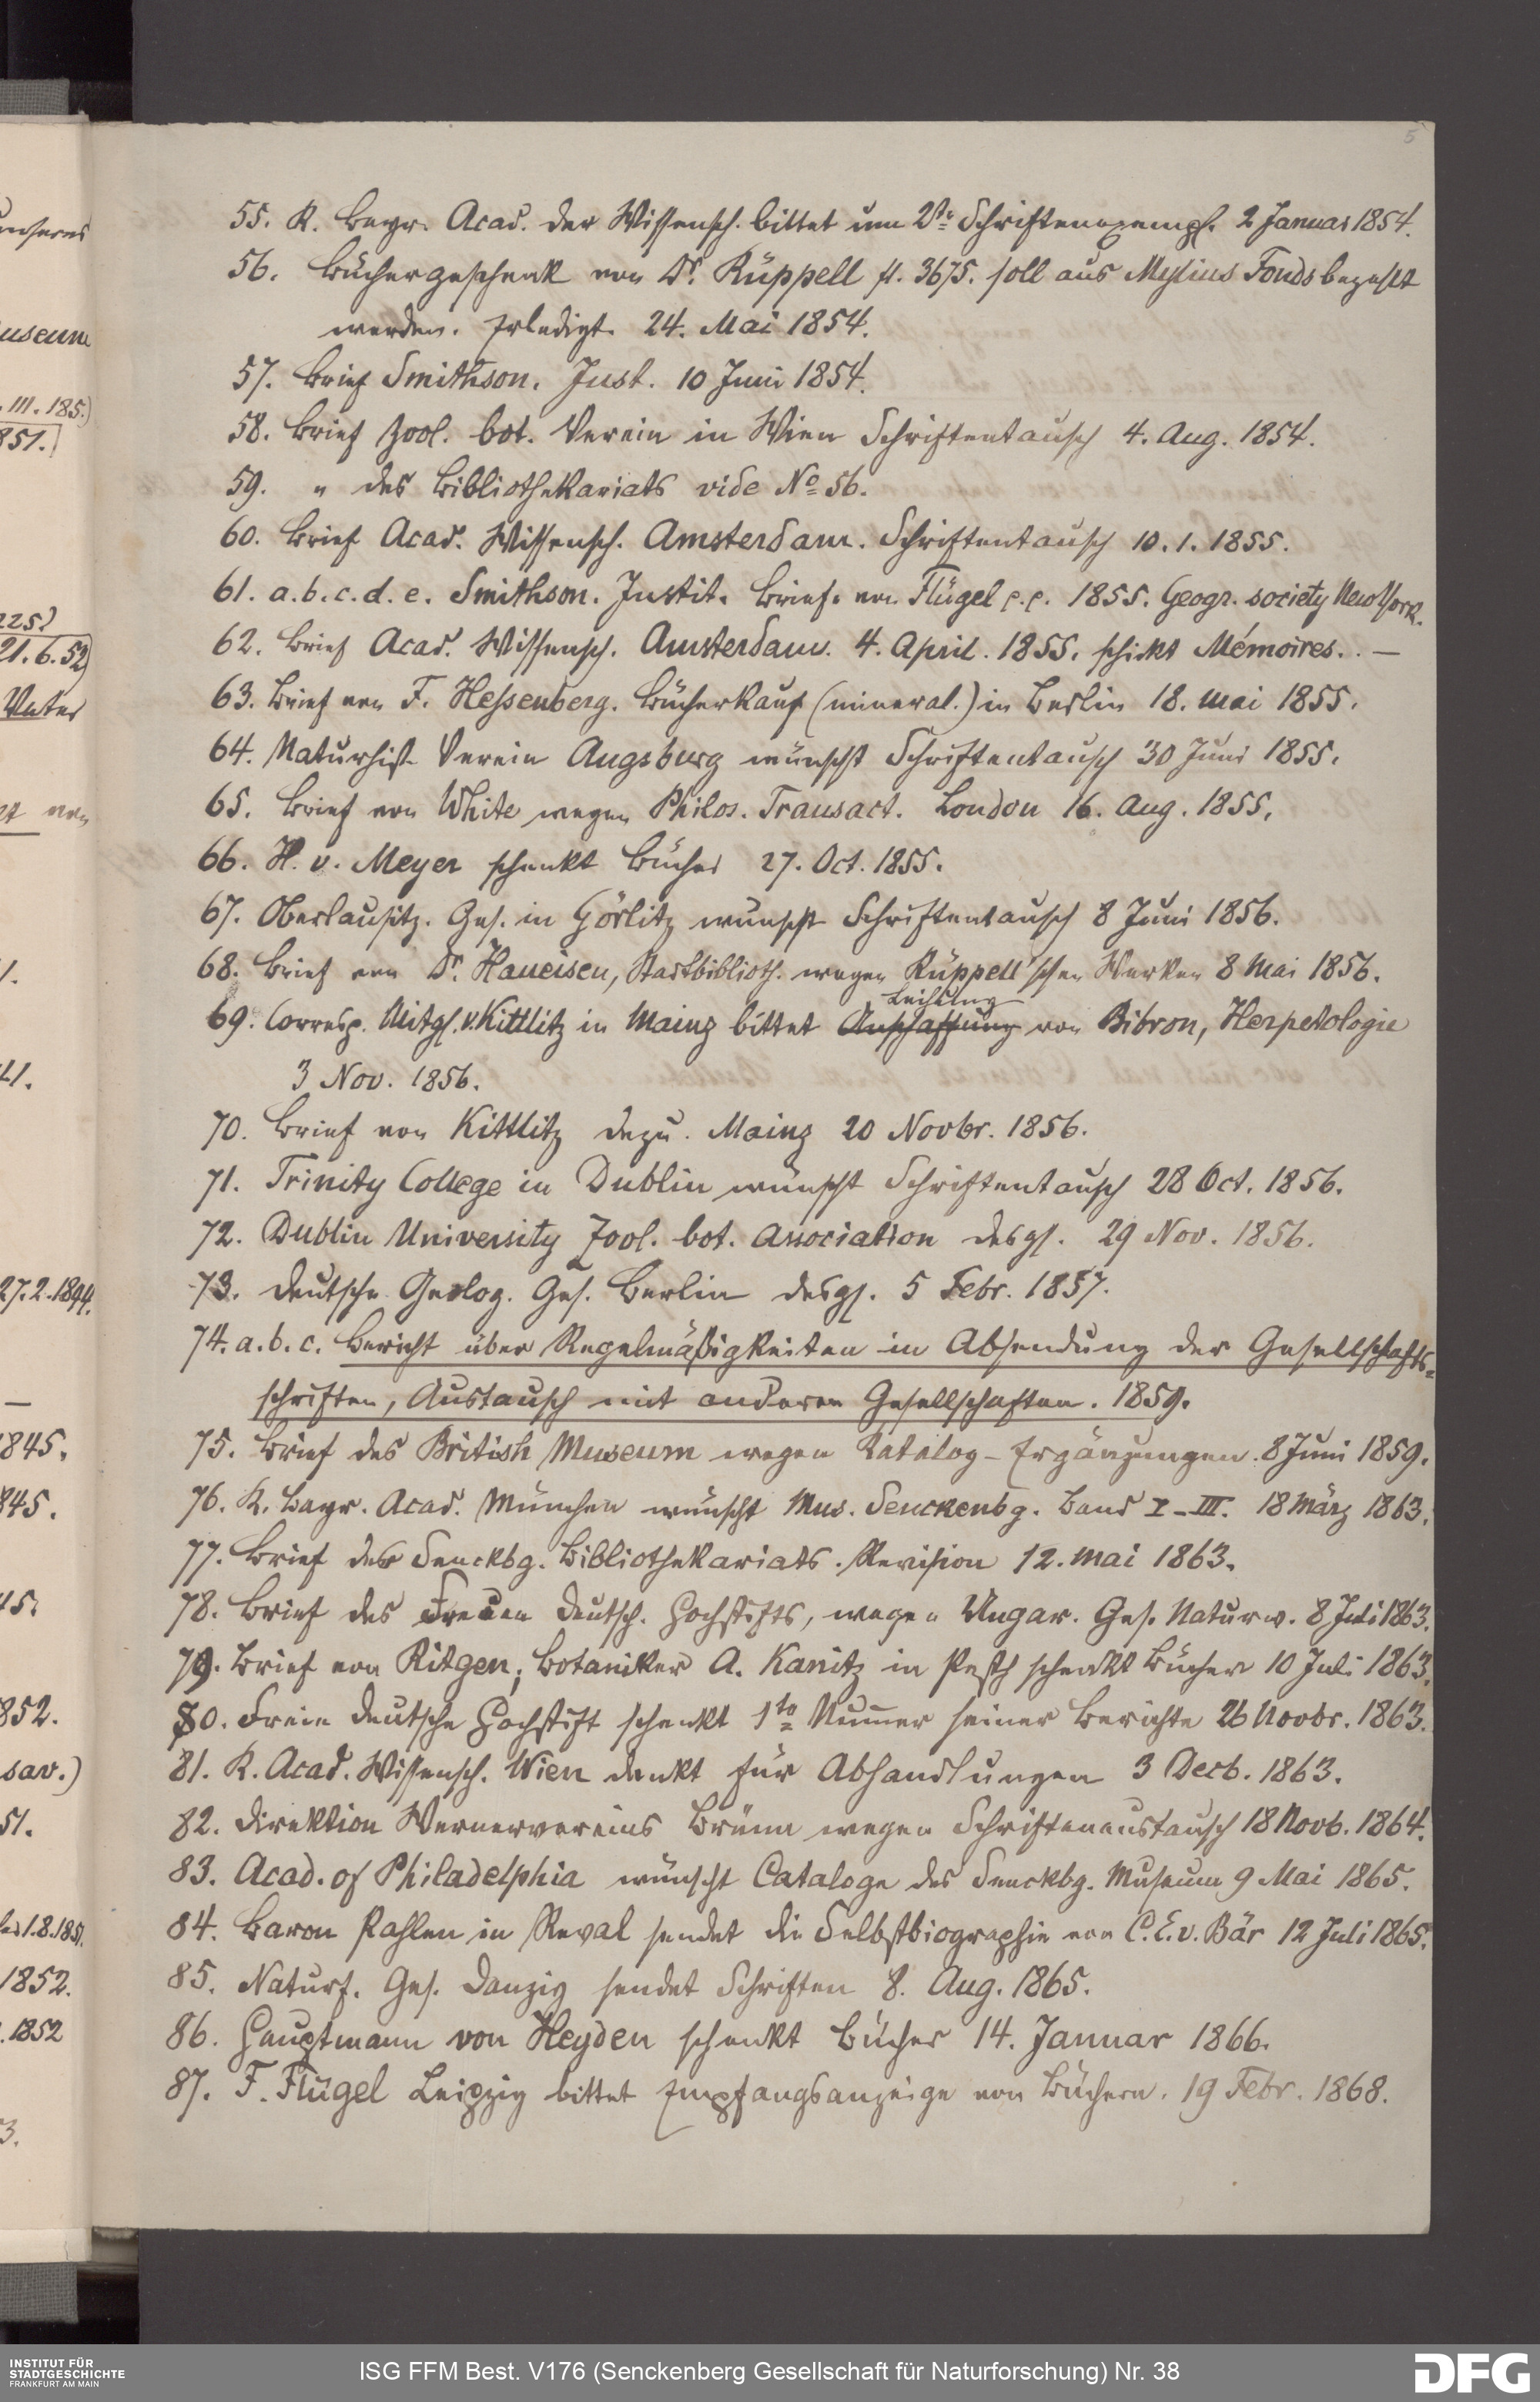 5
55. K. Bayr. Acad. der Wissensch. bittet um 2tes Schriftenexempl. 2 Januar 1854.
56. Büchergeschenk von Dr. Rüppell fl. 3675. soll aus Mylius Fonds bezahlt
werden. Erledigt. 24. Mai 1854.
57. Brief Smithson. Inst. 10 Juni 1854.
58. Brief Zool. bot. Verein in Wien Schriftentausch 4. Aug. 1854.
59. " des Bibliothekariats vide No 56.
60. Brief Acad. Wissensch. Amsterdam. Schriftentausch 10.1.1855.
61. a.b.c.d.e. Smithson. Instit. Briefe von Flügel p.p. 1855. Geogr. society New York.
62. Brief Acad. Wissensch. Amsterdam. 4. April. 1855. schickt Mémoires. . —
63. Brief von F. Hessenberg. Bücherkauf (mineral.) in Berlin 18. Mai 1855.
64. Naturhist. Verein Augsburg wünscht Schriftentausch 30 Juni 1855.
65. Brief von White wegen Philos. Transact. London 16. Aug. 1855.
66. H. v. Meyer schenkt Bücher 27. Oct. 1855.
67. Oberlausitz. Ges. in Görlitz wünscht Schriftentausch 8 Juni 1856.
68. Brief von Dr. Haueisen, Stadtbiblioth. wegen Rüppell'schen Werken 8 Mai 1856.
Leihung
69. Corresp. Mitgl. v. Kittlitz in Mainz bittet Anschaffung von Bibron, Herpetologie
3 Nov. 1856.
70. Brief von Kittlitz dazu. Mainz 20 Novbr. 1856.
71. Trinity College in Dublin wünscht Schriftentausch 28 Oct. 1856.
72. Dublin University Zool. bot. Association desgl. 29 Nov. 1856.
73. Deutsche Geolog. Ges. Berlin desgl. 5 Febr. 1857.
74. a.b.c. Bericht über Regelmäßigkeiten in Absendung der Gesellschafts-
schriften, Austausch mit anderen Gesellschaften. 1859.
75. Brief des British Museum wegen Katalog-Ergänzungen. 8 Juni 1859.
76. K. Bayr. Acad. München wünscht Mus. Senckenbg. Band I-III. 18 März 1863.
77. Brief des Senckbg. Bibliothekariats. Revision 12. Mai 1863.
78. Brief des Freien Deutsch. Hochstifts, wegen Ungar. Ges. Naturw. 8 Juli 1863.
79. Brief von Ritgen; Botaniker A. Kanitz in Pesth schenkt Bücher 10 Juli 1863.
80. Freie Deutsche Hochstift schenkt 1te Nummer seiner Berichte 26 Novbr. 1863.
81. K. Acad. Wissensch. Wien dankt für Abhandlungen 3 Decb. 1863.
82. Direktion Wernervereins Brünn wegen Schriftenaustausch 18 Novb. 1864.
83. Acad. of Philadelphia wünscht Cataloge des Senckbg. Museum 9 Mai 1865.
84. Baron Pahlen in Reval sendet die Selbstbiographie von C. E. v. Bär 12 Juli 1865.
85. Naturf. Ges. Danzig sendet Schriften 8. Aug. 1865.
86. Hauptmann von Heyden schenkt Bücher 14. Januar 1866.
87. F. Flügel Leipzig bittet Empfangsanzeige von Büchern. 19 Febr. 1868.
INSTITUT FÜR
STADTGESCHICHTE
FRANKFURT AM MAIN
ISG FFM Best. V176 (Senckenberg Gesellschaft für Naturforschung) Nr. 38
DFG